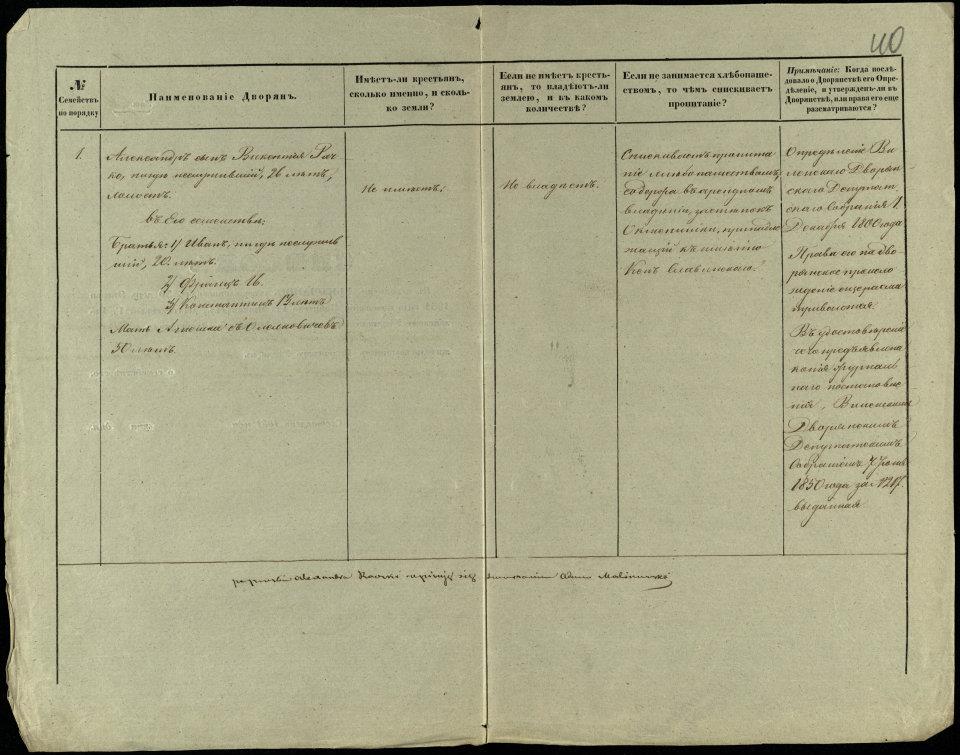 40
№
Семействъ
по порядку
Наименованіе Дворянъ.
Имѣетъ-ли крестьянъ,
сколько именно, и сколь-
ко земли?
Если не имѣетъ кресть-
янъ, то владѣютъ-ли
землею, и въ какомъ
количествѣ?
Если не занимается хлѣбопаше-
ствомъ, то чѣмъ снискиваетъ
пропитаніе?
Примѣчаніе: Когда послѣ-
довало о Дворянствѣ его Опре-
дѣленіе, и утвержденъ-ли въ
Дворянствѣ, или права его еще
разсматриваются?
1.
Александръ сынъ Викентія Рач
ко, нигдѣ неслужившій, 26 лѣтъ,
холостъ.
въ Его семействѣ:
Братья: 1/ Иванъ, нигдѣ неслужив
шій, 20. лѣтъ.
2/ 16.
3/ Константинъ 13 лѣтъ
Мать
50 лѣтъ.
Не имѣетъ;
Не владѣетъ.
Снискиваетъ пропита
ніе хлѣбопашествомъ,
въ арендномъ
владѣніи, застѣнокъ
принадле
жащій къ имѣнію
Опредѣленіе Ви
ленскаго Дворян
скаго Депутат
скаго Собранія 1
Декабря 1800 года
Права его на дво
рянское происхо
жденіе еще разма
триваются.
Въ удостовѣреніи
чего предъявлена
копія журналь
наго постановле
нія, Виленскимъ
Дворянскимъ
Депутатскимъ
Собраніемъ 7
1850 года за №
выданная
Alexandra Raczki Adam Malinowski